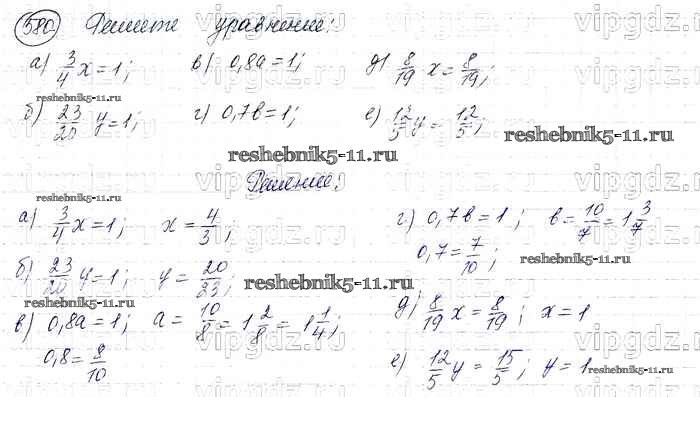 580 Решите уравнение:
а) 3/4 x = 1; в) 0,8a = 1; д) 8/19 x = 8/19;
б) 23/20 y = 1; г) 0,7b = 1; е) 12/5 y = 12/5;
Решение:
а) 3/4 x = 1; x = 4/3;
б) 23/20 y = 1; y = 20/23;
в) 0,8a = 1; a = 10/8 = 1 2/8 = 1 1/4;
0,8 = 8/10
г) 0,7b = 1; b = 10/7 = 1 3/7
0,7 = 7/10;
д) 8/19 x = 8/19; x = 1
е) 12/5 y = 15/5; y = 1
reshebnik5-11.ru
reshebnik5-11.ru
reshebnik5-11.ru
reshebnik5-11.ru
reshebnik5-11.ru
reshebnik5-11.ru
reshebnik5-11.ru
reshebnik5-11.ru
vipgdz.com